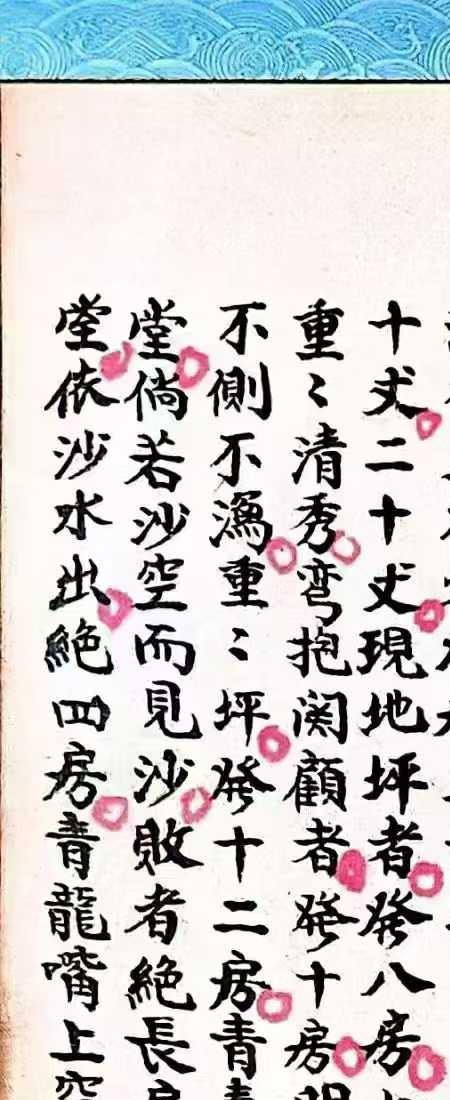 十丈二十丈現地坪者發八房
重〻清秀弯抱関顧者發十房
不側不瀉重〻坪發十二房青
堂倘若沙空而見沙敗者絕長
堂依沙水出絕四房青龍嘴上